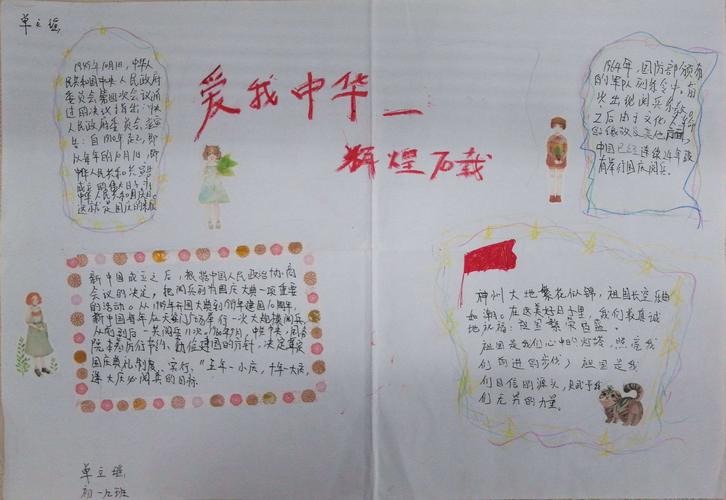 单立瑶
爱我中华—
辉煌石载
1949年10月1日,中华人
民共和国中央人民政府
委员会第四次会议通
过的决议指出:中央
人民政府委员会宣
告:自1950年起,即
以每年的10月1日,即
中华人民共和国宣告
成立的伟大日子,为
中华人民共和国国庆日。
这就是国庆的来历
1964年,国防部颁布
的军队列条令中,首
次出现阅兵
之后由于文化大革命
中国已经连续24年没
有举行国庆阅兵。
新中国成立之后,根据中国人民政治协商
会议的决定,把阅兵列为国庆大典一项重要
的活动。从1949年开国大典到1959年建国10周年,
新中国每年在天安门广场举行一次大规模阅兵,
从前到后一共阅兵11次。1960年9月,中共中央、国务
院本着厉行节约、勤俭建国的方针,决定改革
国庆典礼制度,实行,"五年一小庆,十年一大庆,
逢大庆必阅兵的目标.
神州大地繁花似锦,祖国长空乐曲
如潮。在这美好日子里,我们最真诚
地祝福:祖国繁荣昌盛。
祖国是我们心中的灯塔,照亮我
们前进的步伐;祖国是我
们自信的源头,赋予我
们无穷的力量。
单立瑶
初一九班